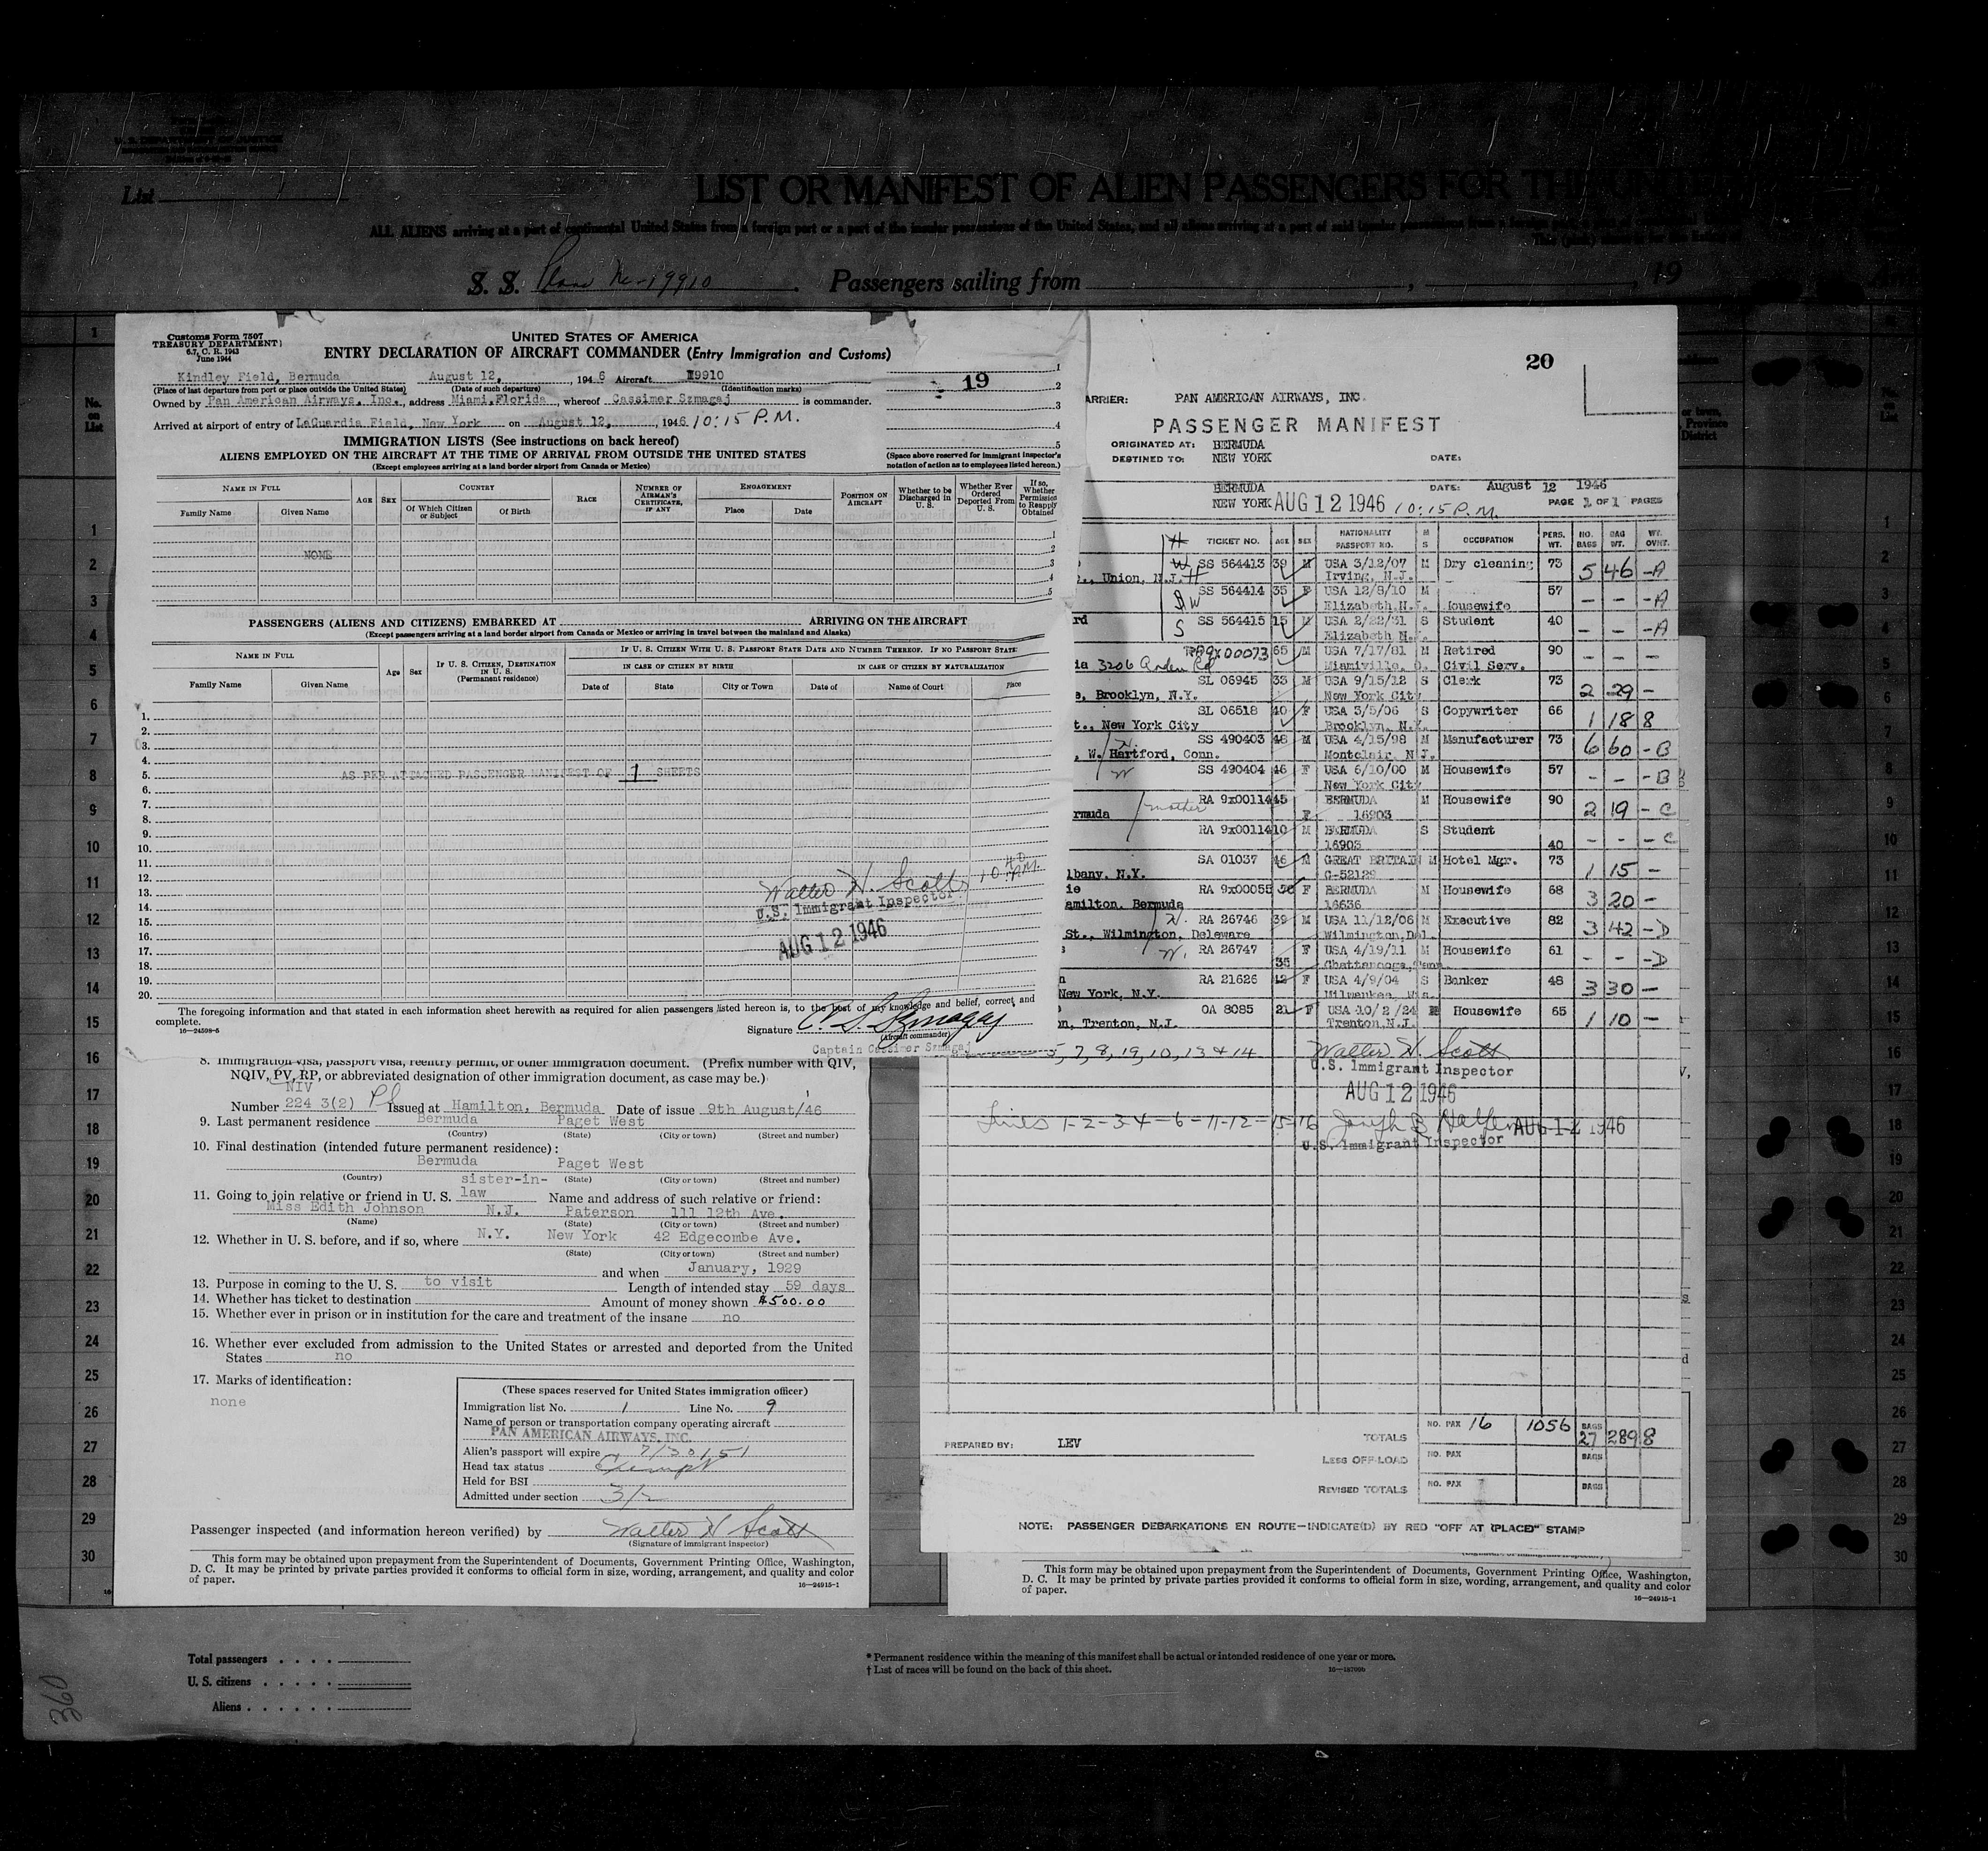 List
LIST OR MANIFEST OF ALIEN PASSENGERS FOR TH
ALL ALIENS arriving at a port of continental United States from a foreign port or a port of the insular possessions of the United States, and all aliens arriving at a port of said insular possessions from a foreign port
S. S. Plane Nc-19910 Passengers sailing from , 19
Customs Form 7507
TREASURY DEPARTMENT
6.7, C. R. 1943
June 1944
UNITED STATES OF AMERICA
ENTRY DECLARATION OF AIRCRAFT COMMANDER (Entry Immigration and Customs)
Kindley Field, Bermuda August 12, , 1946 Aircraft 19910
(Place of last departure from port or place outside the United States) (Date of such departure) (Identification marks)
Owned by Pan American Airways, Inc., address Miami, Florida, whereof Cassimer Szmagaj is commander.
Arrived at airport of entry of LaGuardia Field, New York on August 12, 1946 10:15 P.M.
1
2
3
4
5
19
IMMIGRATION LISTS (See instructions on back hereof)
ALIENS EMPLOYED ON THE AIRCRAFT AT THE TIME OF ARRIVAL FROM OUTSIDE THE UNITED STATES
(Except employees arriving at a land border airport from Canada or Mexico)
(Space above reserved for immigrant inspector's
notation of action as to employees listed hereon.)
NAME IN FULL AGE SEX COUNTRY RACE NUMBER OF AIRMAN'S CERTIFICATE, IF ANY ENGAGEMENT POSITION ON AIRCRAFT Whether to be Discharged in U. S. Whether Ever Ordered Deported From U. S. If so, Whether Permission to Reapply Obtained
Family Name Given Name Of Which Citizen or Subject Of Birth Place Date
1
2
NONE
3
4
5
PASSENGERS (ALIENS AND CITIZENS) EMBARKED AT ARRIVING ON THE AIRCRAFT
(Except passengers arriving at a land border airport from Canada or Mexico or arriving in travel between the mainland and Alaska)
NAME IN FULL Age Sex IF U. S. CITIZEN, DESTINATION IN U. S. (Permanent residence) IF U. S. CITIZEN WITH U. S. PASSPORT STATE DATE AND NUMBER THEREOF. IF NO PASSPORT STATE:
IN CASE OF CITIZEN BY BIRTH IN CASE OF CITIZEN BY NATURALIZATION
Family Name Given Name Date of State City or Town Date of Name of Court Place
1.
2.
3.
4.
5. AS PER ATTACHED PASSENGER MANIFEST OF 1 SHEETS
6.
7.
8.
9.
10.
11.
12.
13.
14.
15.
16.
17.
18.
19.
20.
Walter H. Scott
U.S. Immigrant Inspector
AUG 12 1946
The foregoing information and that stated in each information sheet herewith as required for alien passengers listed hereon is, to the best of my knowledge and belief, correct and
complete.
16—24598-5
Signature C. S. Szmagaj
(Aircraft commander)
Captain Cassimer Szmagaj
20
ARRIER: PAN AMERICAN AIRWAYS, INC.
PASSENGER MANIFEST
ORIGINATED AT: BERMUDA
DESTINED TO: NEW YORK DATE:
BERMUDA DATE: August 12 1946
NEW YORK AUG 12 1946 10:15 P.M. PAGE 1 OF 1 PAGES
TICKET NO. AGE SEX NATIONALITY PASSPORT NO. M S OCCUPATION PERS. WT. NO. BAGS BAG WT. WT. OVNT.
SS 564413 39 M USA 3/12/07 M Dry cleaning 73 5 46 -A
., Union, N.J. Irving, N.J.
SS 564414 35 F USA 12/8/10 M 57 - - -A
Elizabeth N.J. Housewife
rd SS 564415 15 M USA 2/22/31 S Student 40 - - -A
Elizabeth N.J.
RA 9x00073 65 M USA 7/17/81 M Retired 90 - - -
ia 3206 Arden Rd Miamiville, O. Civil Serv.
SL 06945 33 M USA 9/15/12 S Clerk 73 2 29 -
e, Brooklyn, N.Y. New York City
SL 06518 40 F USA 3/5/06 S Copywriter 66 1 18 8
t., New York City Brooklyn, N.Y.
SS 490403 48 M USA 4/15/98 M Manufacturer 73 6 60 -B
, W. Hartford, Conn. Montclair, N J.
SS 490404 46 F USA 6/10/00 M Housewife 57 - - -B
New York City
RA 9x00114 45 F BERMUDA M Housewife 90 2 19 - C
rmuda mother 16903
RA 9x00114 10 M BERMUDA S Student 40 - - - C
16903
SA 01037 46 M GREAT BRITAIN M Hotel Mgr. 73 1 15 -
lbany, N.Y. C-52129
ie RA 9x00055 F BERMUDA M Housewife 68 3 20 -
amilton, Bermuda 16636
RA 26746 39 M USA 11/12/06 M Executive 82 3 42 -D
St., Wilmington, Delaware Wilmington, Del.
s RA 26747 35 F USA 4/19/11 M Housewife 61 - - -D
Chattanooga, Tenn.
n RA 21626 42 F USA 4/9/04 S Banker 48 3 30 -
New York, N.Y. Milwaukee, Wis.
OA 8085 21 F USA 10/2/24 M Housewife 65 1 10 -
n, Trenton, N.J. Trenton, N.J.
5, 7, 8, 19, 10, 13 & 14 Walter H. Scott
U.S. Immigrant Inspector
AUG 12 1946
Lines 1-2-3-4-6-11-12-15-16 AUG 12 1946
U.S. Immigrant Inspector
TOTALS NO. PAX 16 1056 BAGS 27 289 8
PREPARED BY: LEV
LESS OFF-LOAD NO. PAX BAGS
REVISED TOTALS NO. PAX BAGS
NOTE: PASSENGER DEBARKATIONS EN ROUTE—INDICATE(D) BY RED "OFF AT (PLACE)" STAMP
8. Immigration visa, passport visa, reentry permit, or other immigration document. (Prefix number with QIV,
NQIV, PV, RP, or abbreviated designation of other immigration document, as case may be.)
NIV
Number 224 3(2) Issued at Hamilton, Bermuda Date of issue 9th August/46
9. Last permanent residence Bermuda Paget West
(Country) (State) (City or town) (Street and number)
10. Final destination (intended future permanent residence):
Bermuda Paget West
(Country) (State) (City or town) (Street and number)
11. Going to join relative or friend in U. S. sister-in-law Name and address of such relative or friend:
Miss Edith Johnson N.J. Paterson 111 12th Ave.
(Name) (State) (City or town) (Street and number)
12. Whether in U. S. before, and if so, where N.Y. New York 42 Edgecombe Ave.
(State) (City or town) (Street and number)
and when January, 1929
13. Purpose in coming to the U. S. to visit Length of intended stay 59 days
14. Whether has ticket to destination Amount of money shown $500.00
15. Whether ever in prison or in institution for the care and treatment of the insane no
16. Whether ever excluded from admission to the United States or arrested and deported from the United
States no
17. Marks of identification:
none
(These spaces reserved for United States immigration officer)
Immigration list No. 1 Line No. 9
Name of person or transportation company operating aircraft
PAN AMERICAN AIRWAYS, INC.
Alien's passport will expire 7/30/51
Head tax status Exempt
Held for BSI
Admitted under section 3/2
Passenger inspected (and information hereon verified) by Walter H Scott
(Signature of immigrant inspector)
This form may be obtained upon prepayment from the Superintendent of Documents, Government Printing Office, Washington,
D. C. It may be printed by private parties provided it conforms to official form in size, wording, arrangement, and quality and color
of paper.
16—24915-1
This form may be obtained upon prepayment from the Superintendent of Documents, Government Printing Office, Washington,
D. C. It may be printed by private parties provided it conforms to official form in size, wording, arrangement, and quality and color
of paper.
16—24915-1
Total passengers
U. S. citizens
Aliens
* Permanent residence within the meaning of this manifest shall be actual or intended residence of one year or more.
† List of races will be found on the back of this sheet.
360